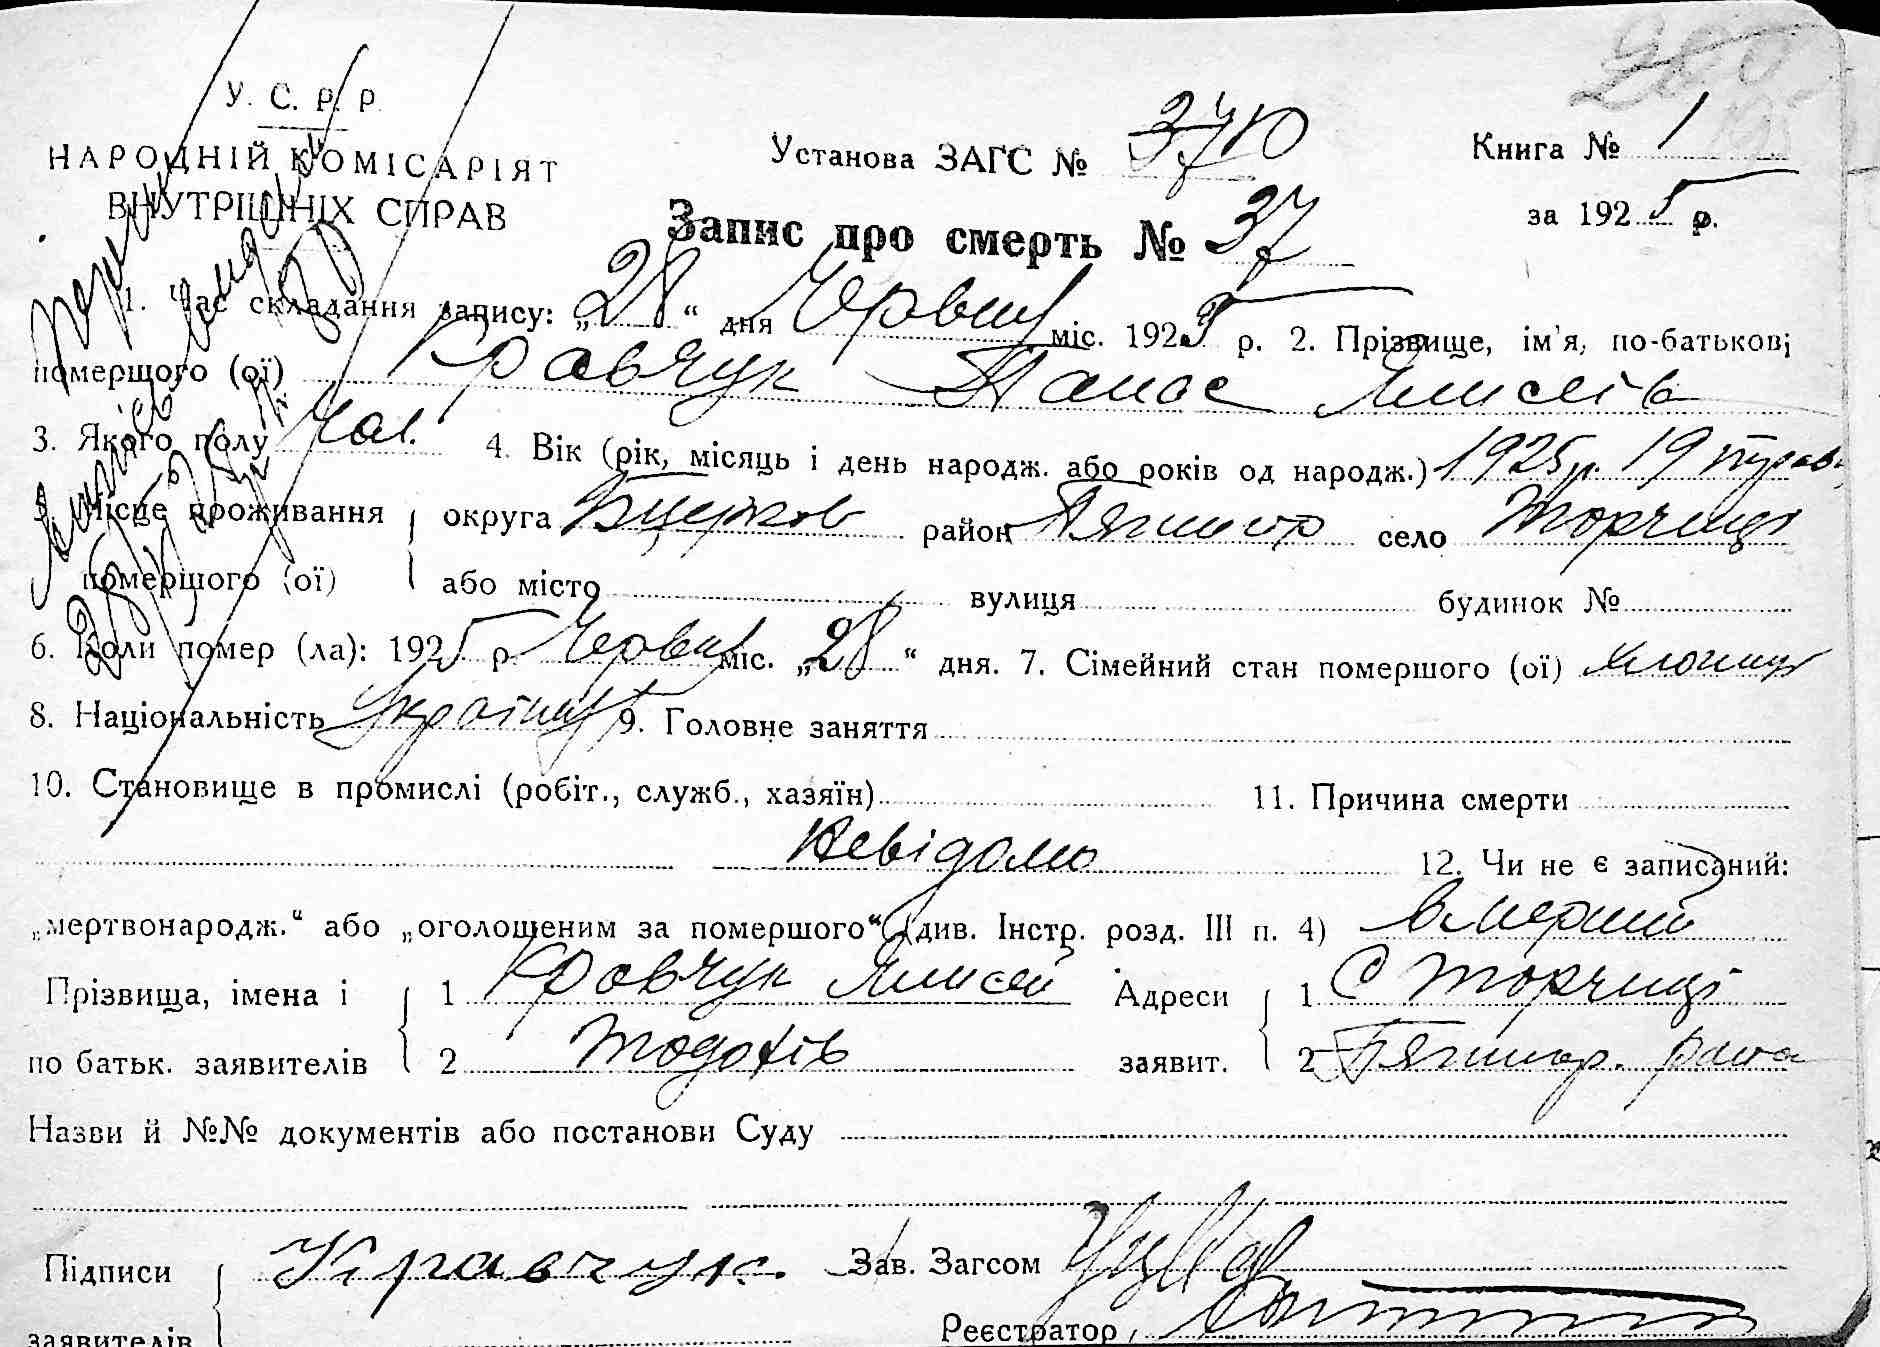 У. С. Р. Р.
НАРОДНІЙ КОМІСАРІЯТ
ВНУТРІШНІХ СПРАВ
Установа ЗАГС №
Книга № 1
за 1925 р.
Запис про смерть № 37
1. Час складання запису: „28“ дня Червня міс. 1925 р. 2. Прізвище, ім'я, по-батькові
помершого (ої) Кравчук Панас Ялисеів
3. Якого полу Чол. 4. Вік (рік, місяць і день народж. або років од народж.) 1925 р. 19 трав.
5. Місце проживання
помершого (ої)
округа Бцерков район Пягимар село Торчиці
або місто вулиця будинок №
6. Коли помер (ла): 1925 р. Червня міс. „28“ дня. 7. Сімейний стан помершого (ої) хлопець
8. Національність Українец 9. Головне заняття
10. Становище в промислі (робіт., служб., хазяїн) 11. Причина смерти
Невідомо 12. Чи не є записаний:
„мертвонародж.“ або „оголошеним за помершого“ (див. Інстр. розд. III п. 4) вмерший
Прізвища, імена і
по батьк. заявителів
1 Кравчук Ялисей
2 Тодохів
Адреси
заявит.
1 С Торчиці
2 Пягимар. рана
Назви й №№ документів або постанови Суду
Підписи
заявителів
Кравчук.
Зав. Загсом
Реєстратор